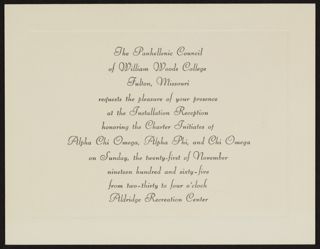 The Panhellenic Council
of William Woods College
Fulton, Missouri
requests the pleasure of your presence
at the Installation Reception
honoring the Charter Initiates of
Alpha Chi Omega, Alpha Phi, and Chi Omega
on Sunday, the twenty-first of November
nineteen hundred and sixty-five
from two-thirty to four o'clock
Aldridge Recreation Center